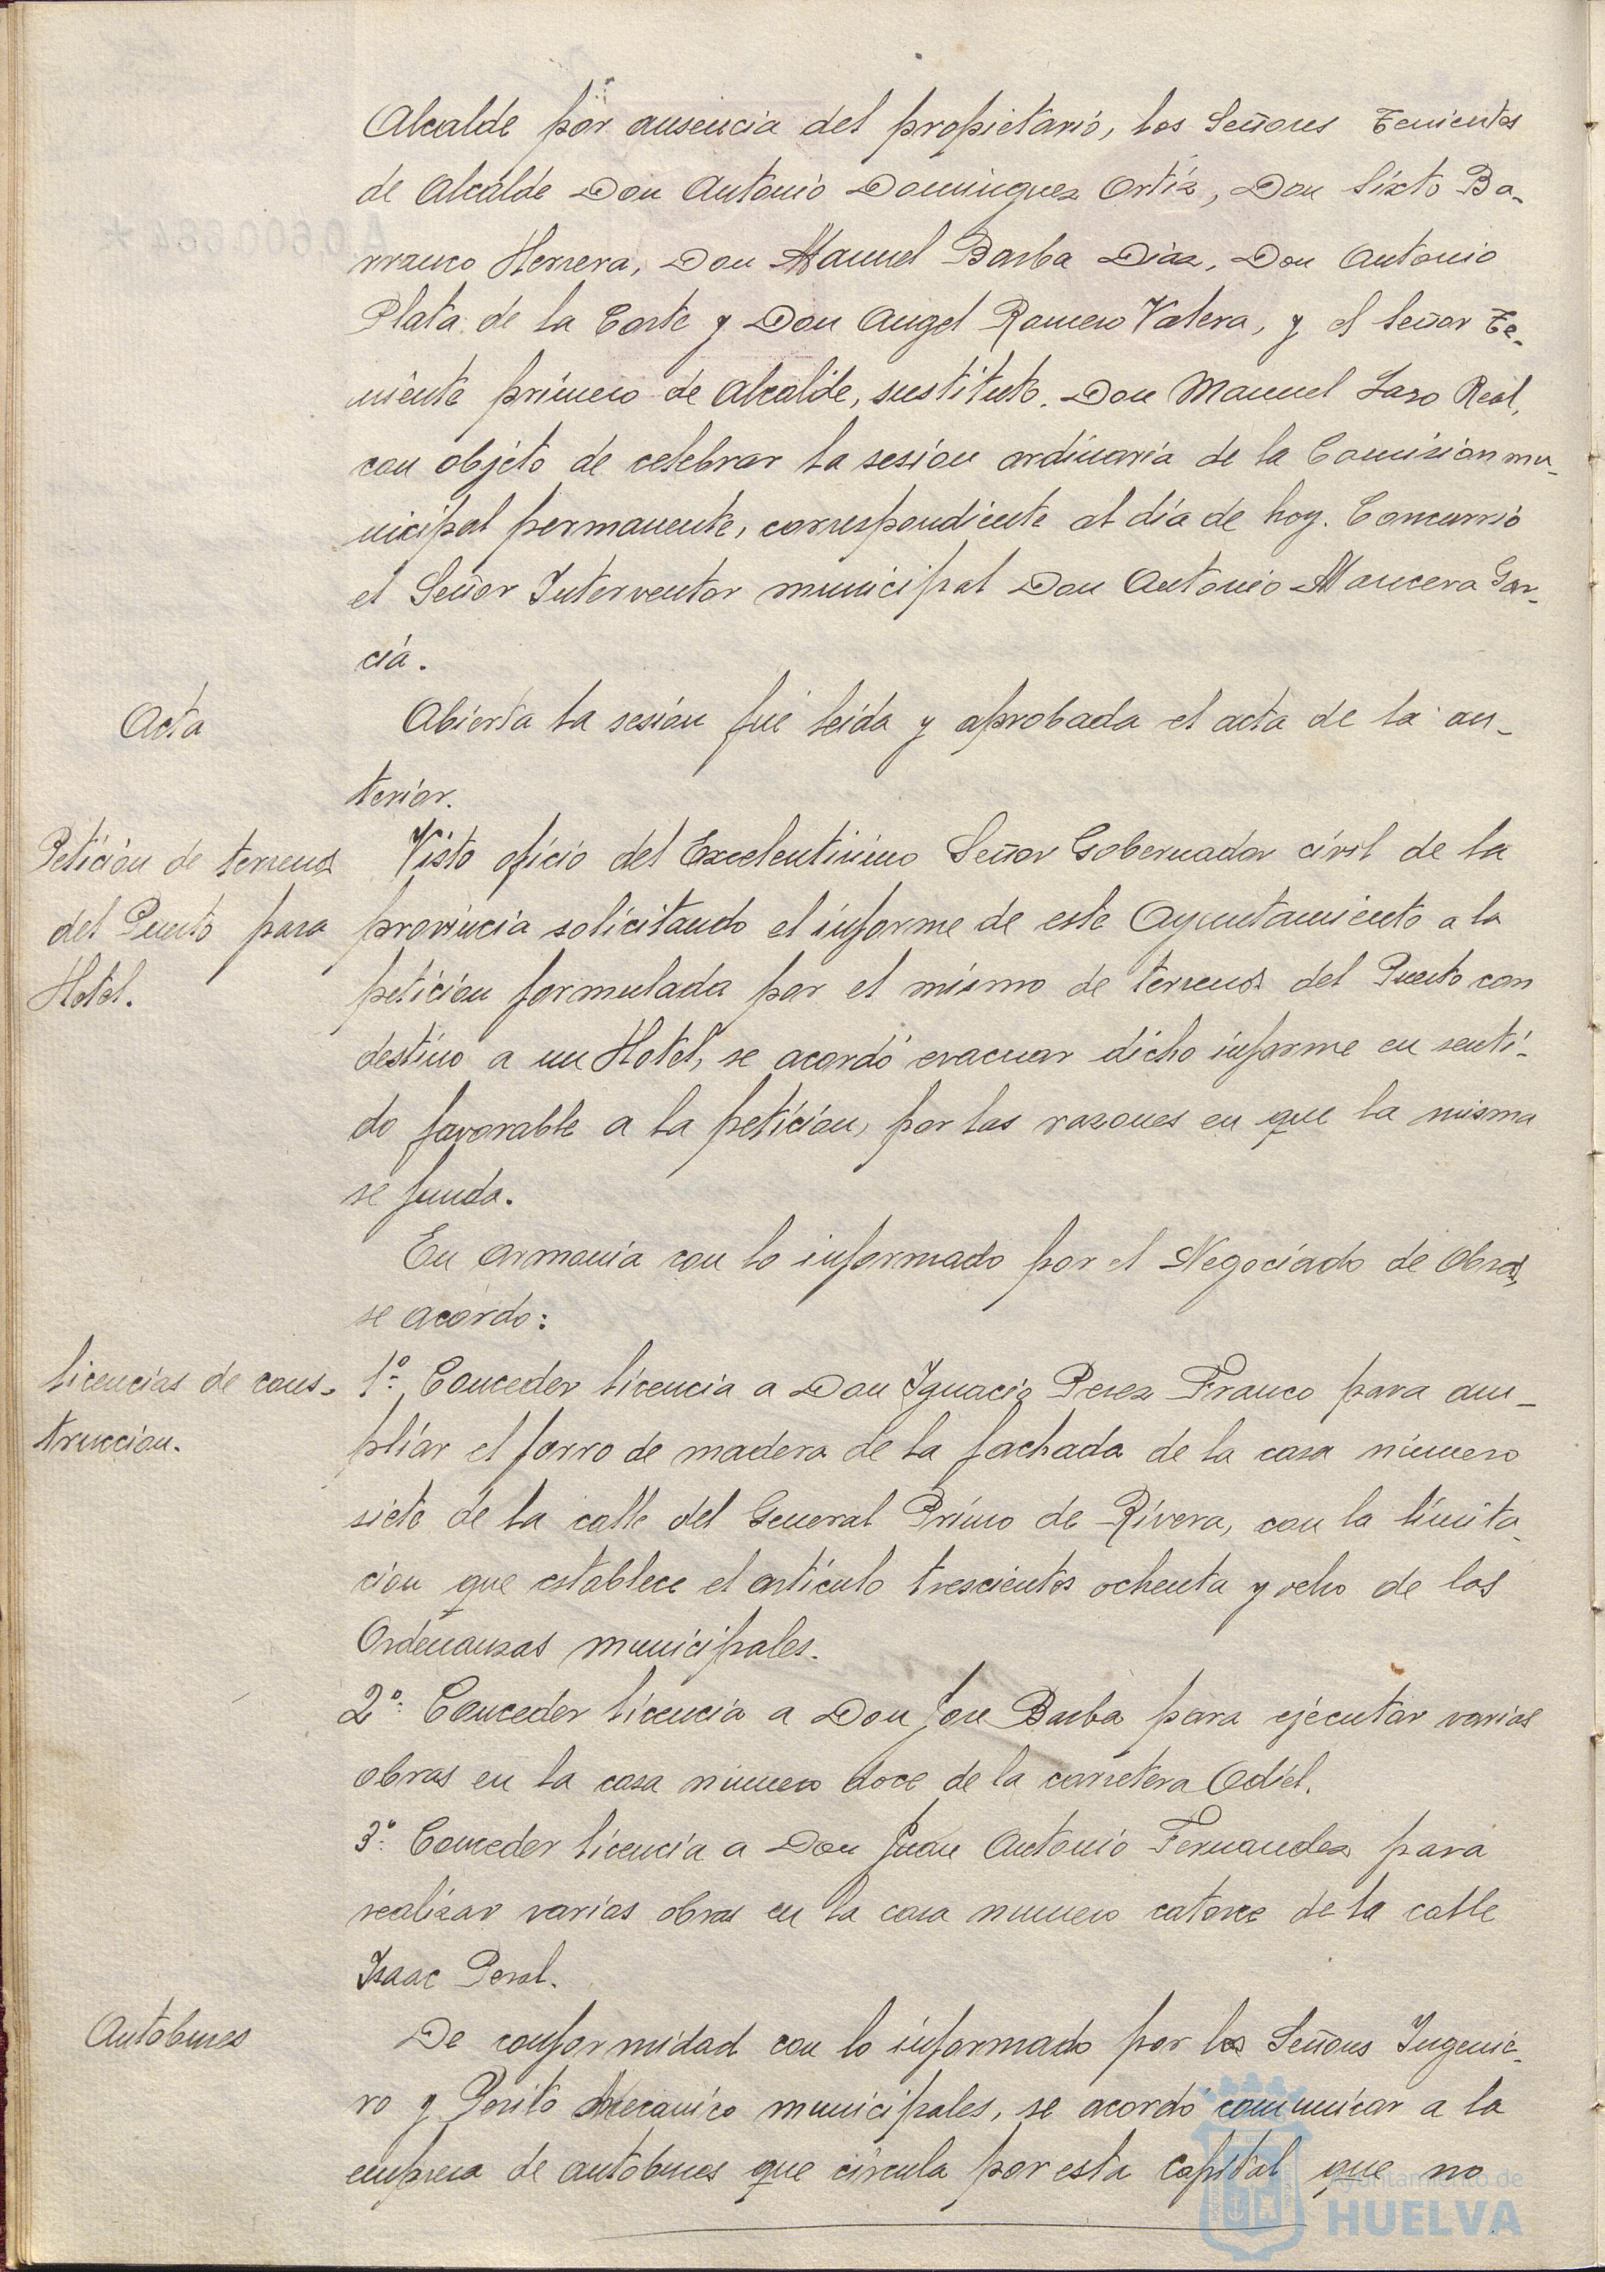 Alcalde por ausencia del propietario, los Señores Tenientes
de Alcalde Don Antonio Dominguez Ortiz, Don Sixto Ba-
rranco Herrera, Don Manuel Barba Diaz, Don Antonio
Plata de la Corte y Don Angel Romero Valera, y el Señor Te-
niente primero de Alcalde, sustituto, Don Manuel Laso Real,
con objeto de celebrar la sesión ordinaria de la Comisión mu-
nicipal permanente, correspondiente al día de hoy. Concurrió
el Señor Interventor municipal Don Antonio Mancera Gar-
cía.
Acta
Abierta la sesión fué leída y aprobada el acta de la an-
terior.
Petición de terrenos
del Puerto para
Hotel.
Visto oficio del Excelentísimo Señor Gobernador civil de la
provincia solicitando el informe de este Ayuntamiento a la
petición formulada por el mismo de terrenos del Puerto con
destino a un Hotel, se acordó evacuar dicho informe en senti-
do favorable a la petición, por las razones en que la misma
se funda.
En armonía con lo informado por el Negociado de Obras,
se acordo:
Licencias de cons-
trucción.
1º: Conceder licencia a Don Ignacio Perez Franco para am-
pliar el forro de madera de la fachada de la casa número
siete de la calle del General Primo de Rivera, con la limita-
ción que establece el artículo trescientos ochenta y ocho de las
Ordenanzas municipales.
2º: Conceder licencia a Don Jose Barba para ejecutar varias
obras en la casa número doce de la carretera Odiel.
3º: Conceder licencia a Don Juan Antonio Fernandez para
realizar varias obras en la casa número catorce de la calle
Isaac Peral.
Autobuses
De conformidad con lo informado por los Señores Ingenie-
ro y Perito Mecanico municipales, se acordó comunicar a la
empresa de autobuses que circula por esta capital que no
Ayuntamiento de
HUELVA